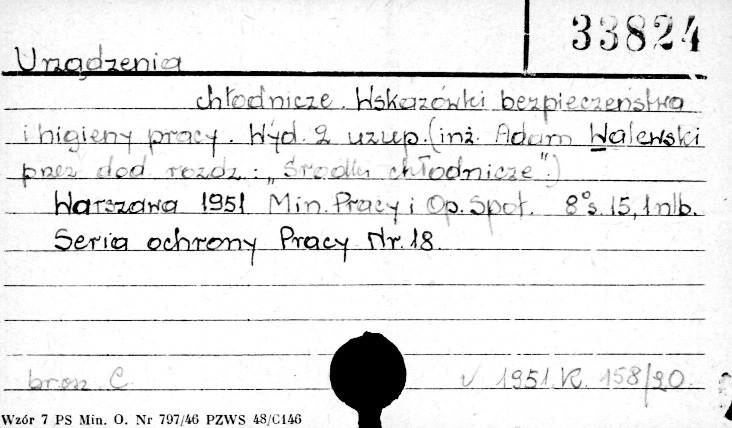 33824
Urządzenia
chłodnicze. Wskazówki bezpieczeństwa
i higieny pracy. Wyd. 2 uzup. (inż. Adam Walewski
przez dod. rozdz.: „Środki chłodnicze".)
Warszawa 1951 Min. Pracy i Op. Społ. 8° s. 15, 1 nlb.
Seria ochrony Pracy Nr. 18.
brosz. C. V 1951.K. 158/20.
Wzór 7 PS Min. O. Nr 797/46 PZWS 48/C146